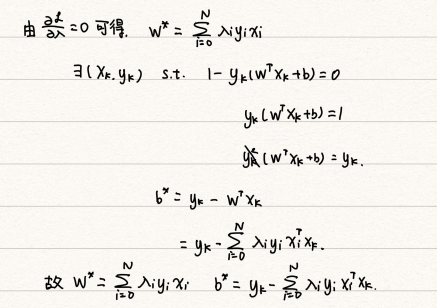 由 ∂ℒ/∂λ = 0 可得. W* = Σ_{i=0}^{N} λiyixi
∃(xk, yk) s.t. 1 - yk(wᵀxk+b) = 0
yk(wᵀxk+b) = 1
yk²(wᵀxk+b) = yk.
b* = yk - wᵀxk
= yk - Σ_{i=0}^{N} λiyixiᵀxk.
故 W* = Σ_{i=0}^{N} λiyixi b* = yk - Σ_{i=0}^{N} λiyixiᵀxk.